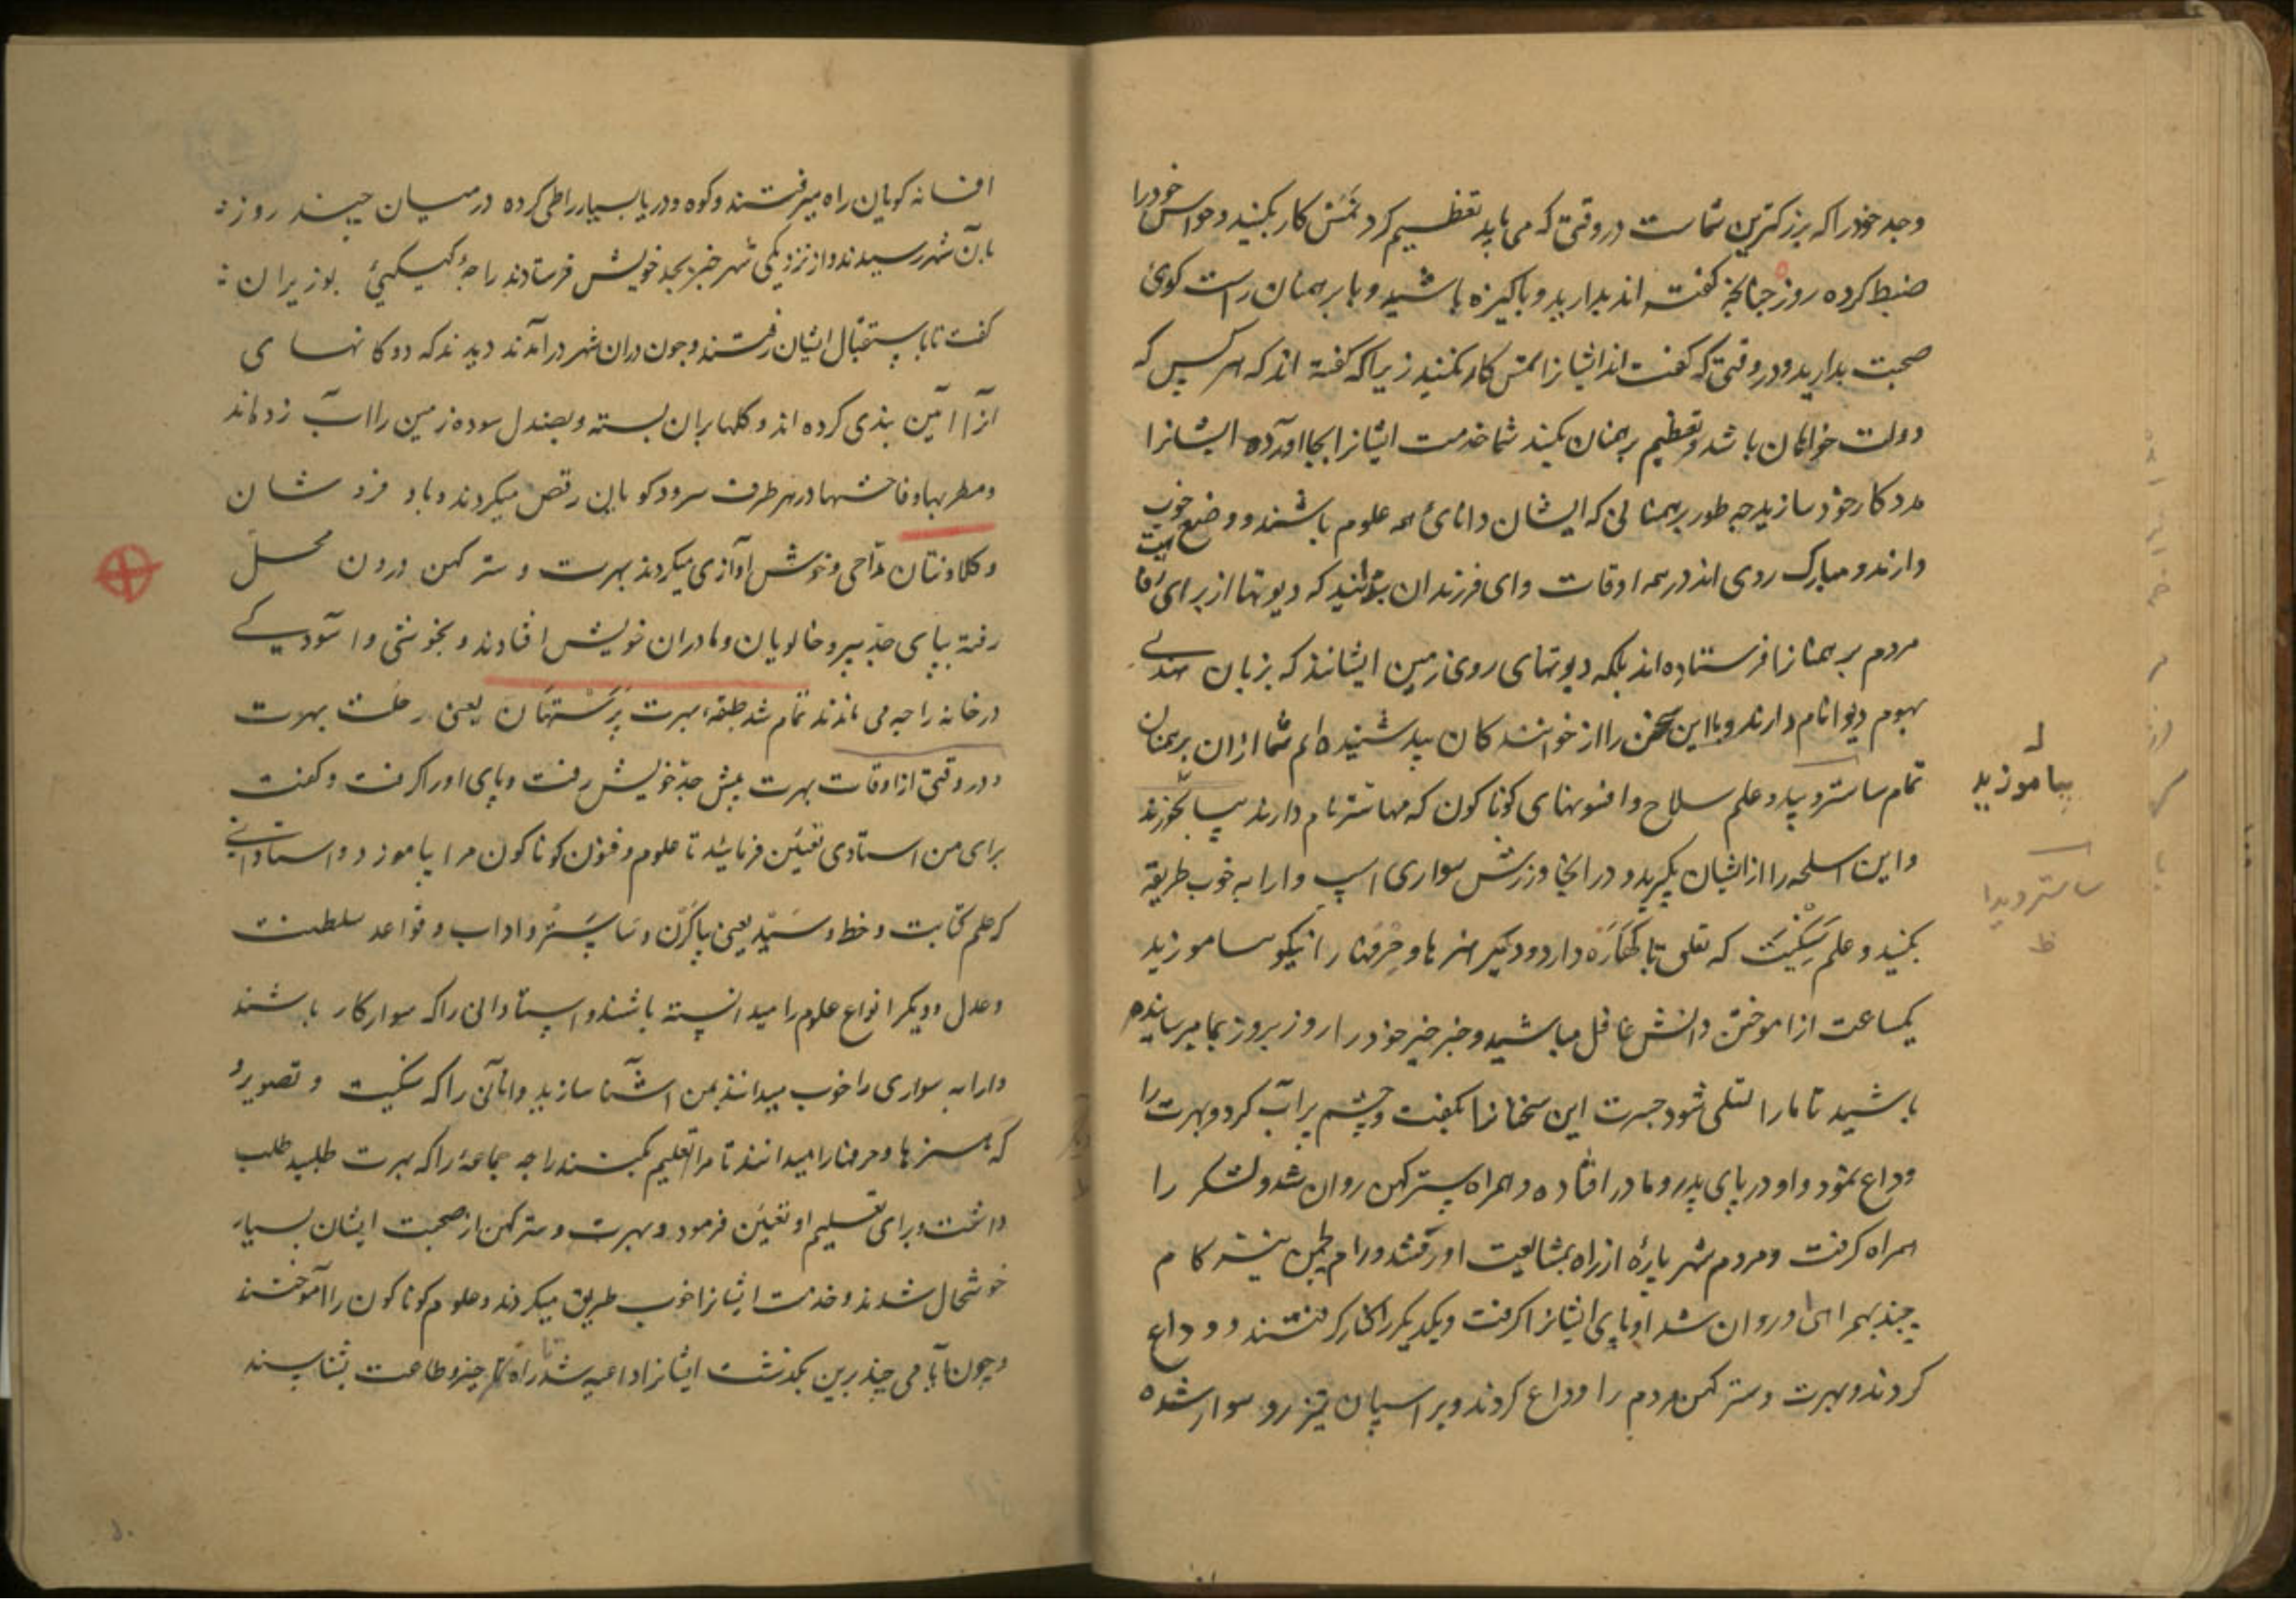 وجد خود را که بزرکترین شماست در وقتی که می باید تعظیم کرد نمش کار بکنید و حواس خود را
ضبط کرده روزه چنانچه کفته اند بدارید و پاکیزه باشید و با برهمنان راست کوی
صحبت بدارید و در وقتی که کفت اند ایشانرا نمش کار بکنید زیرا که کفته اند که هر کس که
دولت خواهان باشد و تعظیم برهمنان بکند شما خدمت ایشانرا بجا آورده ایشانرا
مدد کار خود سازید چه طور برهمنانی که ایشان دانای همه علوم باشند و وضع خوب
دارند و مبارک روی اند در همه اوقات و ای فرزندان بدانید که دیوتها از برای رفاهیت
مردم برهمنانرا فرستاده اند بلکه دیوتهای روی زمین ایشانند که بزبان هندی
بهوم دیوا نام دارند و ما این سخن را از خوانندکان بید شنیده ام شما ازان برهمنان
تمام ساستر و بید و علم سلاح و افسونهای کوناکون که مهامنتر نام دارند
و این اسلحه را از ایشان بکیرید و در انجا ورزش سواری اسپ و ارابه خوب طریقه
بکنید و علم سنکیت که تعلق بکتهاره دارد و دیکر هنرها و حرفتها را نیکو بیاموزید
یکساعت از آموختن دانش غافل مباشید و خبر خیر خود را روز بروز بما میرسانیده
باشید تا ما را تسلی شود جسرت این سخنانرا بکفت و چشم پر آب کرد و بهرت را
وداع نمود و او در پای پدر و مادر افتاده و همراه سترکهن روان شد و لشکر را
همراه کرفت و مردم شهر پارهٔ از راه بمشایعت او رفتند و رام و لچمن نیز کام
چند بهمراهی او روان شد او پای ایشانرا کرفت و یکدیکر را کنار کرفتند و وداع
کردند و بهرت و سترکهن مردم را وداع کردند و بر اسپان تیز رو سوار شده
بیاموزید
ساستر و بیدا
ظ
افسانه کویان راه میرفتند و کوه و دریا بسیار را طی کرده در میان چند روز
بآن شهر رسیدند و از نزدیکی شهر خبر بجد خویش فرستادند راجهٔ کیکیی بوزیران
کفت تا باستقبال ایشان رفتند و چون دران شهر در آمدند دیدند که دوکانهای
آنرا آئین بندی کرده اند و کلها بران بسته و بصندل سوده زمین را آب زده اند
و مطربها و فاحشها در هر طرف سرود کویان رقص میکردند و باد فروشان
و کلاونتان مداحی و خوش آوازی میکردند بهرت و سترکهن درون محل
رفته بپای جد پیر و خالویان و مادران خویش افتادند و بخوشی و آسودکی
در خانه راجه می ماندند تمام شد طبقه بهرت پرستهان یعنی رحلت بهرت
و در وقتی از اوقات بهرت پیش جد خویش رفت و پای او را کرفت و کفت
برای من استادی تعیین فرمائید تا علوم و فنون کوناکون مرا بیاموزد و استادانی
که علم کتابت و خط و سبد یعنی بیاکرن و نیا شستر و اداب و قواعد سلطنت
و عدل و دیکر انواع علوم را میدانسته باشند و استادانی را که سوار کار باشند
و ارابه سواری را خوب میدانند بمن آشنا سازید و انانی را که سنکیت و تصویر و
که هنرها و حرفتها را میدانند تا مرا تعلیم بکنند راجه جماعهٔ را که بهرت طلبید طلب
داشت و برای تعلیم او تعیین فرمود و بهرت و سترکهن از صحبت ایشان بسیار
خوشحال شدند و خدمت ایشانرا خوب طریق میکردند و علوم کوناکون را آموختند
و چون ایامی چند برین بکذشت ایشانرا داعیه شد تا راه خیر و طاعت بشناسند